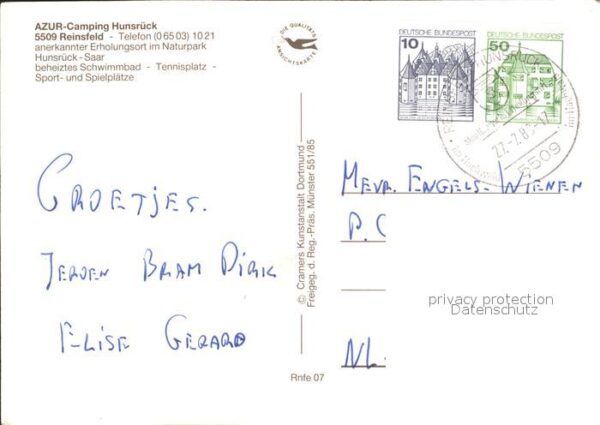 AZUR-Camping Hunsrück
5509 Reinsfeld - Telefon (0 65 03) 10 21
anerkannter Erholungsort im Naturpark
Hunsrück - Saar
beheiztes Schwimmbad - Tennisplatz -
Sport- und Spielplätze
DIE QUALITÄTS
ANSICHTSKARTE
DEUTSCHE BUNDESPOST
10
DEUTSCHE BUNDESPOST
50
5509
GROETJES.
JEROEN BRAM DIRK
ELISE GERARD
© Cramers Kunstanstalt Dortmund -
Freigeg. d. Reg.-Präs. Münster 551/85
MEVR. ENGELS-WIENEN
P.C
NL.
privacy protection
Datenschutz
Rnfe 07